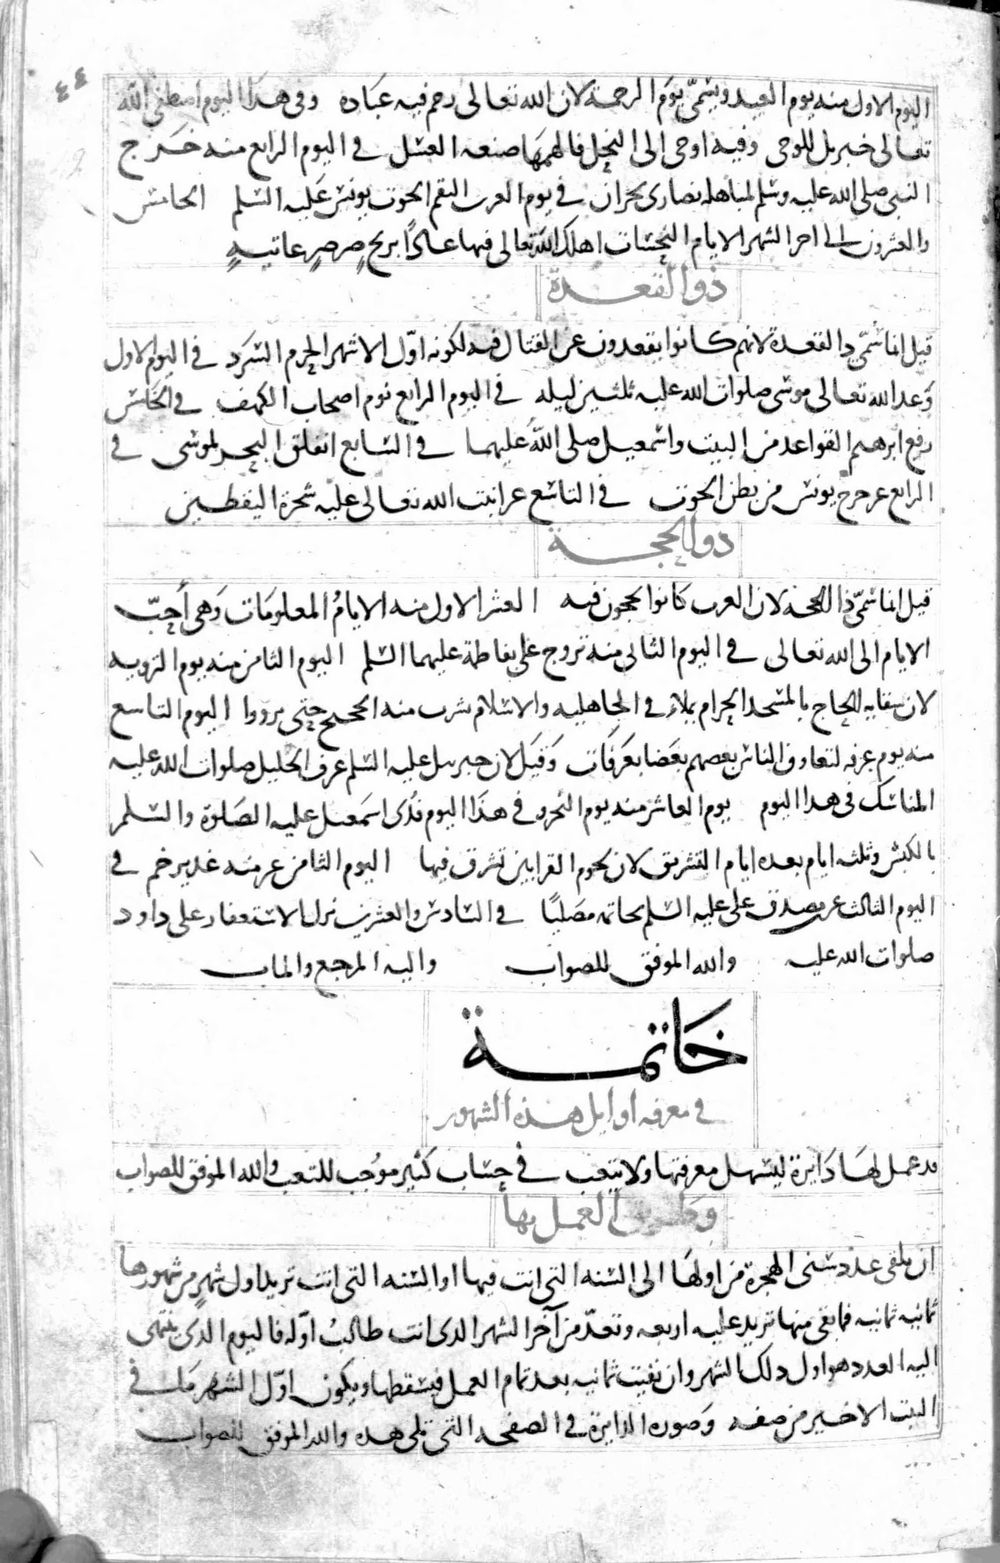 ٤٤
اليوم الاول منه يوم العيد ويسمّى يوم الرحمة لان الله تعالى رحم فيه عباده وفي هذا اليوم اصطفى الله
تعالى جبريل للوحى وفيه اوحى الى النحل فالهمها صنعه العسل في اليوم الرابع منه خرج
النبي صلى الله عليه وسلم لمباهله نصارى نجران في يوم التقم الحوت يونس عليه السلم الخامس
والعشرون الى اخر الشهر الايام النحسات اهلك الله تعالى فيها عادًا بريح صرصر عاتيةٍ
ذو القعدة
قيل انما سمّى ذا القعدة لانهم كانوا يقعدون عن القتال فيه لكونه اوّل الاشهر الحرم السَّرد في اليوم الاول
وعد الله تعالى موسى صلوات الله عليه ثلثين ليله في اليوم الرابع نوم اصحاب الكهف في الخامس
رفع ابرهيم القواعد من البيت واسمعيل صلى الله عليهما في السابع انفلق البحر لموسى في
الرابع عشر خرج يونس من بطن الحوت في التاسع عشر انبت الله تعالى عليه شجرة اليقطين
ذو الحجة
قيل انما سمّى ذا الحجة لان العرب كانوا يحجون فيه العشر الاول منه الايامُ المعلومات وهى أحبّ
الايام الى الله تعالى في اليوم الثانى منه تزوج علىّ بفاطمة عليهما السلم اليوم الثامن منه يوم التروية
لان سقايه الحاج بالمسجد الحرام تملأ في الجاهليه والاسلام شرب منه الحجيج حتى يرووا اليوم التاسع
منه يوم عرفه لتعارف الناس بعضهم بعضا بعرفات وقيل لان جبريل عليه السلم عرف الخليل صلوات الله عليه
المناسك في هذا اليوم يوم العاشر منه يوم النحر وفي هذا اليوم فدى اسمعيل عليه الصلوة والسلم
بالكبش وثلثه ايام بعده ايام التشريق لان لحوم القرابين تشرق فيها اليوم الثامن عشر منه غدير خم في
اليوم الثالث عشر تصدق على عليه السلم بخاتمه مصليًا في السادس والعشرين نزل الاستغفار على داود
صلوات الله عليه والله الموفق للصواب واليه المرجع والماب
خاتمة
في معرفه اوايل هذه الشهور
قد عمل لها دايرة ليسهل معرفتها ولا يتعب في حساب كثير موجب للتعب والله الموفق للصواب
وطريق العمل بها
ان يلقى عدد سنى الهجرة من اولها الى السنه التى انت فيها او السنه التى انت تريد اول شهر من شهورها
ثمانيه ثمانيه فما بقى منها تزيد عليه اربعه وتعدّ من آخر الشهر الذى انت طالبُ اوّله فاليوم الذى ينتهى
اليه العدد هو اول ذلك الشهر وان بقيت ثمانيه بعد تمام العمل فيسقطها ويكون اوّل الشهر في
البيت الاخير من صفه وصورة الدايرة في الصفحه التى تلى هذه والله الموفق للصواب